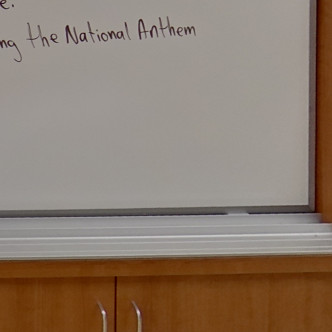 e.
ng the National Anthem